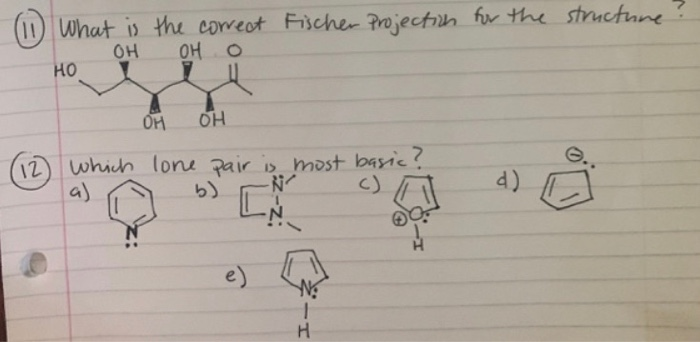 11 What is the correct Fischer Projection for the structure?
OH OH O
HO
OH OH
12 which lone pair is most basic?
a) b) c) d)
N N N O H
e)
N
H